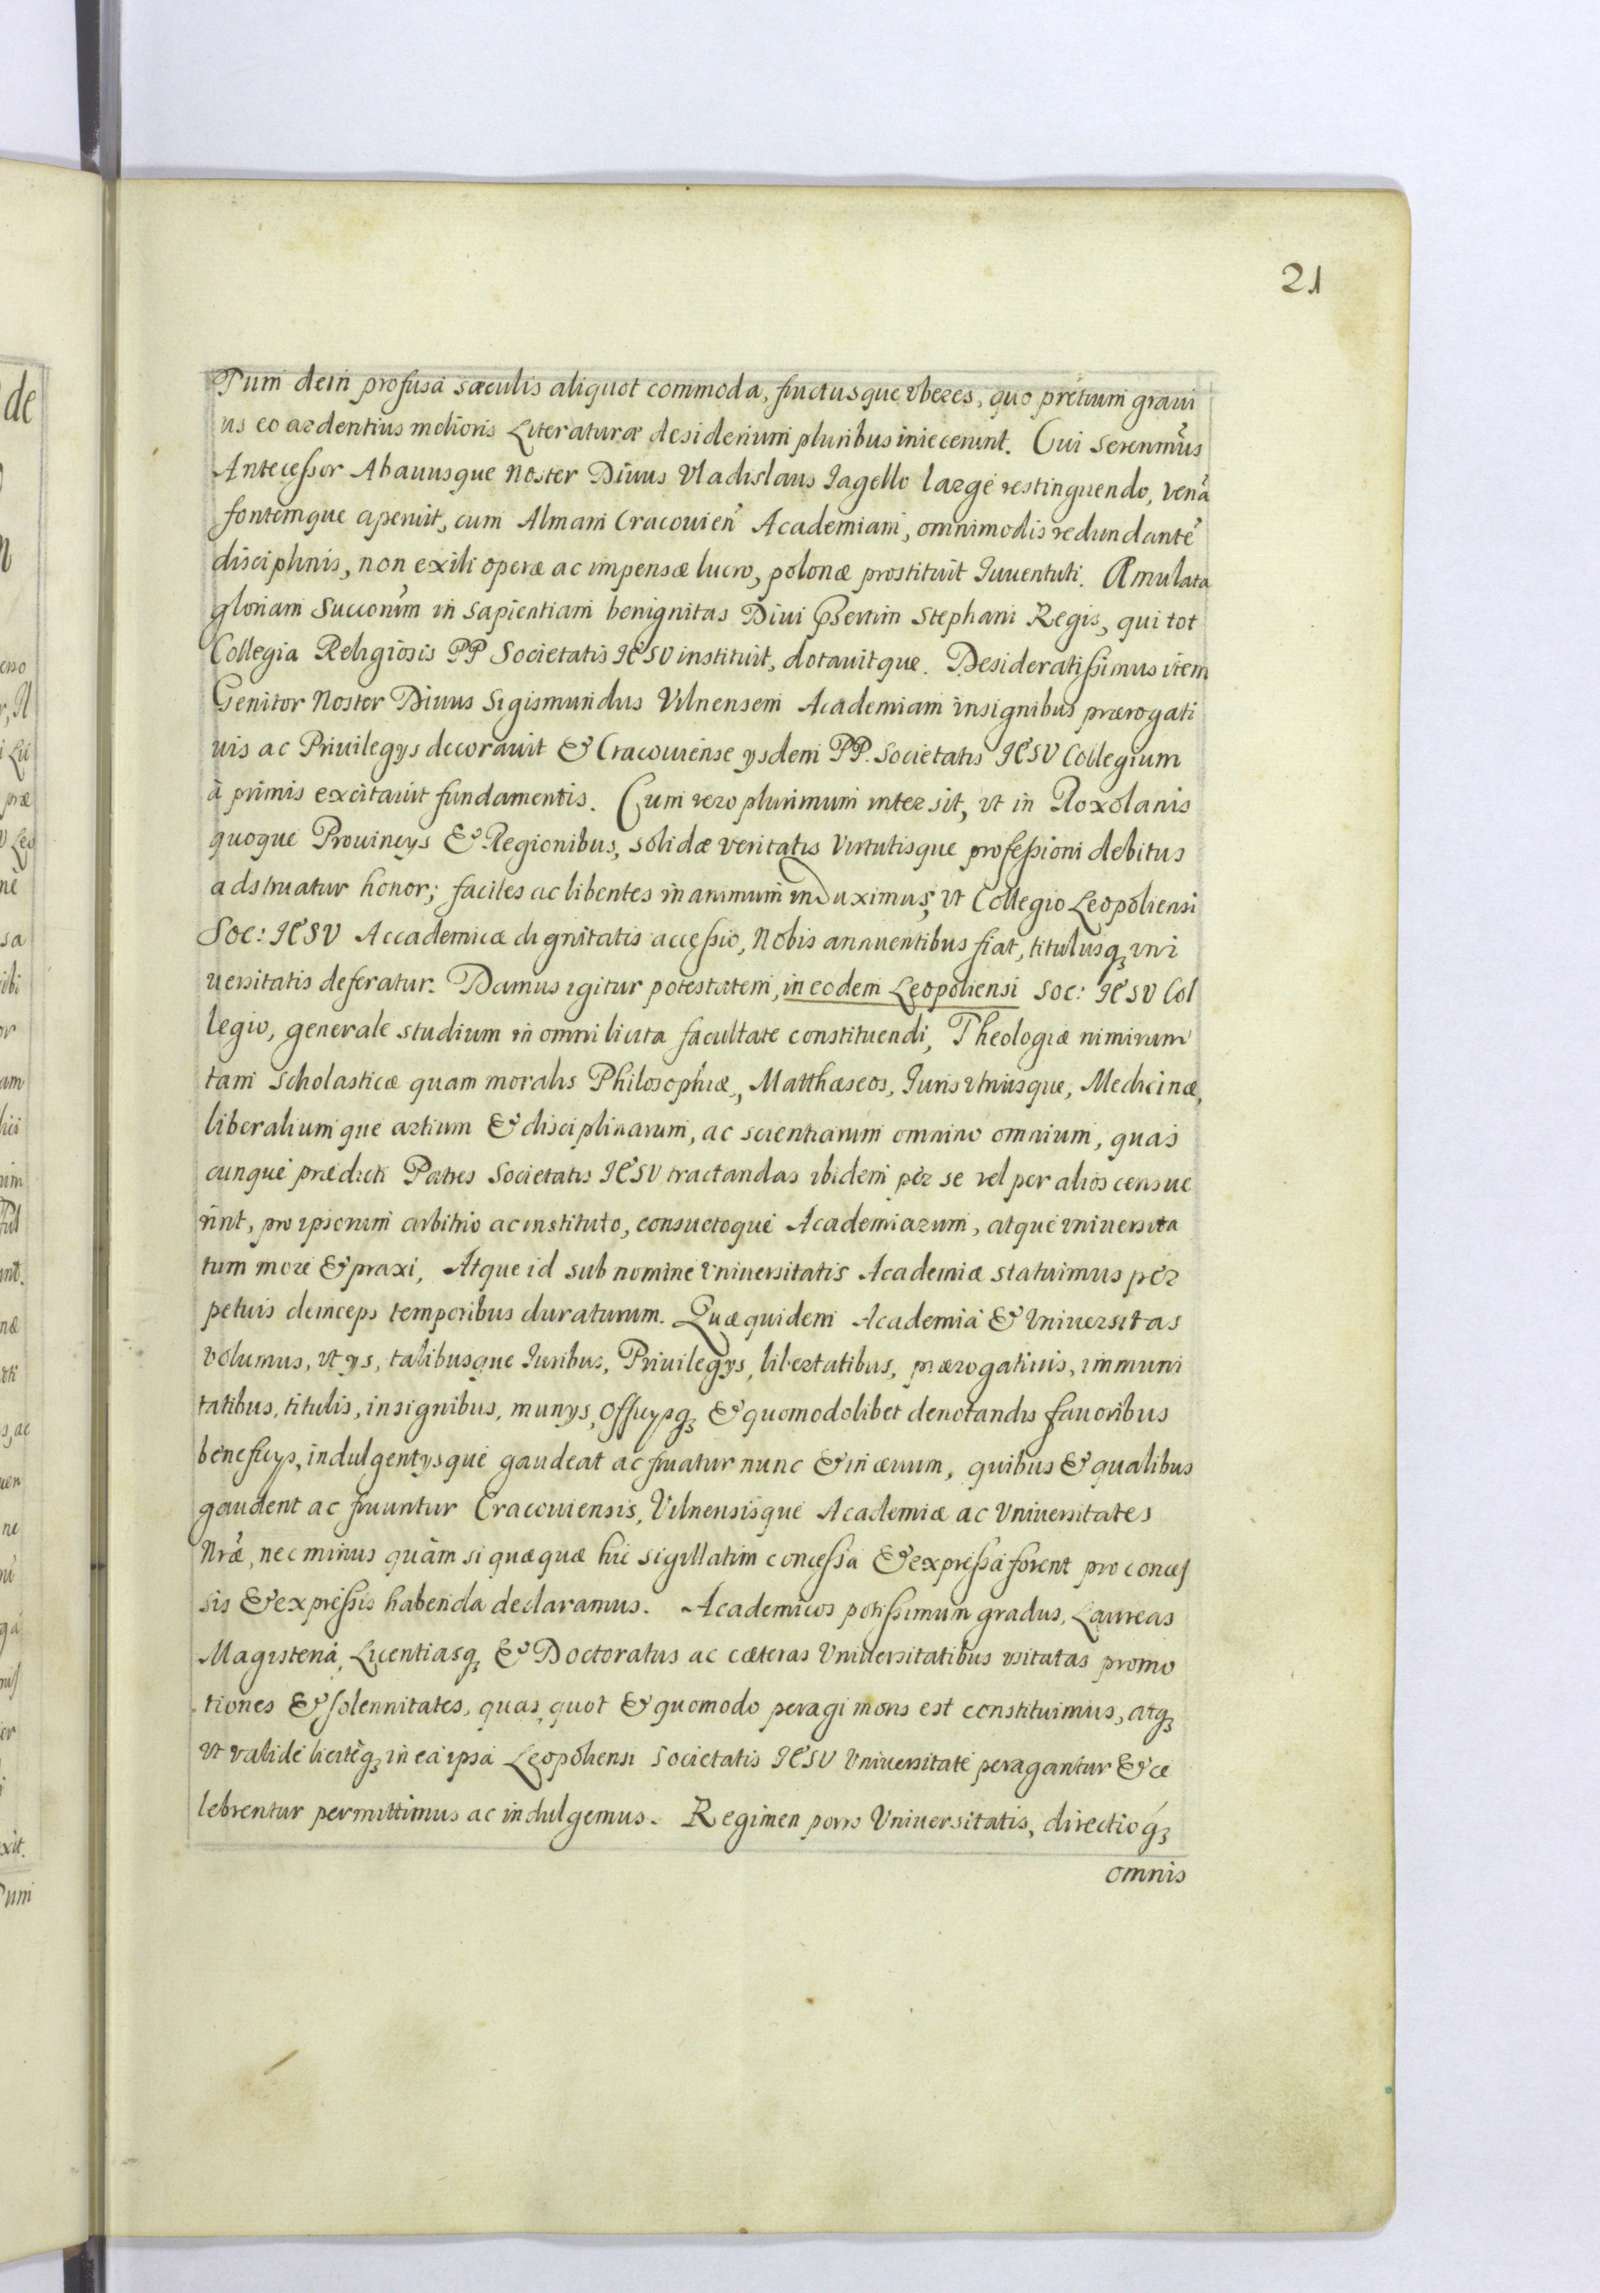 21
Tum dein profusa sæculis aliquot commoda, fructusque vberes, quo pretium graui
us eo ardentius melioris Literaturæ desiderium pluribus iniecerunt. Cui Serenmūs
Antecessor Abauusque Noster Diuus Vladislaus Jagello large restinguendo, venã
fontemque aperuit, cum Almam Cracouień Academiam, omnimodis redundantẽ
disciplinis, non exili operæ ac impensæ lucro, polonæ prostituit Juuentuti. Æmulata
gloriam Succorum in sapientiam benignitas Diui Psertim Stephani Regis, qui tot
Collegia Religiosis PP Societatis IESU instituit, dotauitque. Desideratissimus item
Genitor Noster Diuus Sigismundus Vilnensem Academiam insignibus prærogati
uis ac Priuilegys decorauit & Cracouiense ysdem PP. Societatis IESU Collegium
à primis excitauit fundamentis. Cum vero plurimum intersit, vt in Roxolanis
quoque Prouincys & Regionibus, solidæ veritatis Virtutisque professioni debitus
adstruatur honor; faciles ac libentes in animum induximus, vt Collegio Leopoliensi
Soc: IESU Accademicæ dignitatis accessio, Nobis annuentibus fiat, titulusq; vni
uersitatis deferatur. Damus igitur potestatem, in eodem Leopoliensi Soc: IESU Col
legio, generale studium in omni licita facultate constituendi, Theologiæ nimirum
tam Scholasticæ quam moralis Philosophiæ, Matthæseos, Juris vtriusque, Medicinæ,
liberaliumque artium & disciplinarum, ac scientiarum omnino omnium, quas
cunque prædicti Patres Societatis IESU tractandas ibidem per se vel per alios censue
rint, pro ipsorum arbitrio ac instituto, consuetoque Academiarum, atque vniuersita
tum more & praxi, Atque id sub nomine vniuersitatis Academiæ statuimus per
petuis deinceps temporibus duraturum. Quæ quidem Academia & Vniuersitas
volumus, vt ys, talibusque Juribus, Priuilegys, libertatibus, prærogatiuis, immuni
tatibus, titulis, insignibus, munys, Officysq; & quomodolibet denotandis fauoribus
beneficys, indulgentysque gaudeat ac fruatur nunc & in æuum, quibus & qualibus
gaudent ac fruuntur Cracouiensis, Vilnensisque Academiæ ac Vniuersitates
Nræ, nec minus quàm si quæquæ hic sigillatim concessa & expressa forent pro conces
sis & expressis habenda declaramus. Academicos potissimum gradus, Laureas
Magisteria, Licentiasq; & Doctoratus ac cæteras Vniuersitatibus vsitatas promo
tiones & solennitates, quas, quot & quomodo peragi moris est constituimus, atq;
vt valide liciteq; in ea ipsa Leopoliensi Societatis IESU Vniuersitate peragantur & ce
lebrentur permittimus ac indulgemus. Regimen porro Vniuersitatis, directioq;
omnis